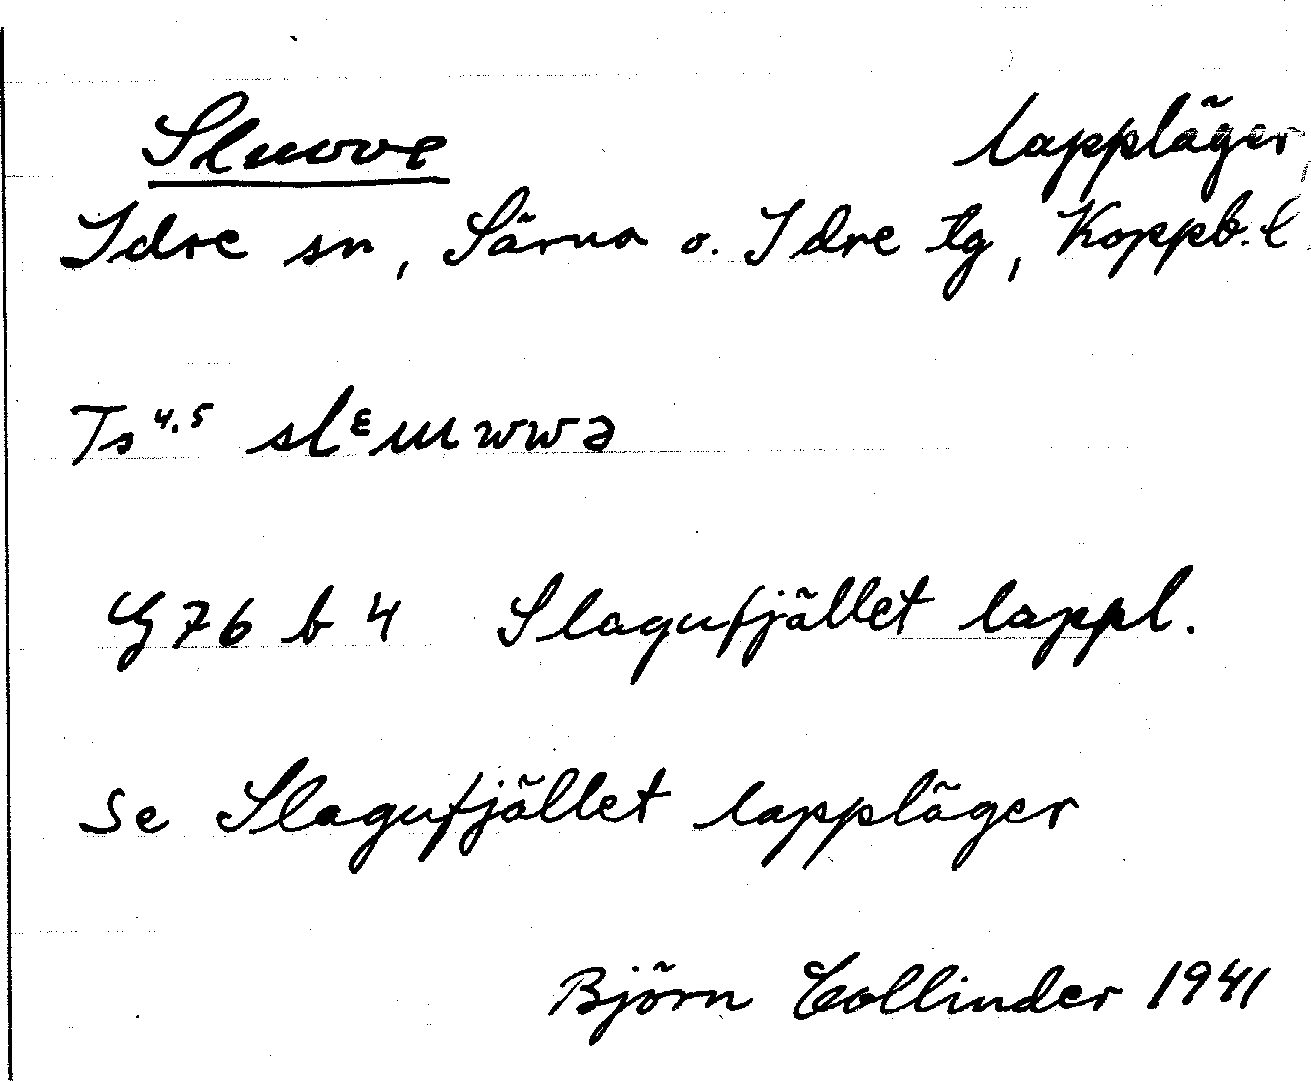 Sluvve lappläger
Idre sn, Särna o. Idre tg, Koppb. l.
Ts 4.5 slᵋɯwwə
G 76 b 4 Slagufjället lappl.
Se Slagufjället lappläger
Björn Collinder 1941